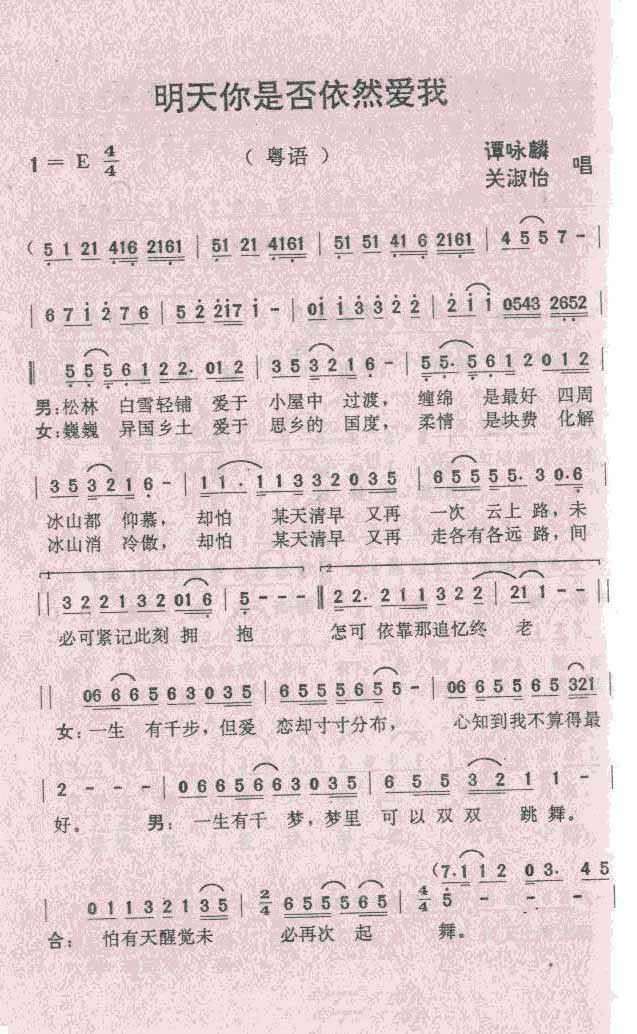 明天你是否依然爱我
1 = E 4/4 （粤语） 谭咏麟 关淑怡 唱
( 5 1 21 416 2161 | 51 21 4161 | 51 51 41 6 2161 | 4 5 5 7 - |
| 6 7 i 2 7 6 | 5 2 2i7 i - | 0i i 3 3 2 2 | 2 i i 0543 2652
5 5 5 6 1 2 2· 01 2 | 3 5 3 2 1 6 - | 5 5· 5 6 1 2 0 1 2
男:松林 白雪轻铺 爱于 小屋中 过渡， 缠绵 是最好 四周
女:巍巍 异国乡土 爱于 思乡的 国度， 柔情 是块费 化解
| 3 5 3 2 1 6 - | 1 1 · 1 1 3 3 2 0 3 5 | 6 5 5 5 5· 3 0·6
冰山都 仰慕， 却怕 某天清早 又再 一次 云上路，未
冰山消 冷傲， 却怕 某天清早 又再 走各有各远路，间
1 2
|| 3 2 2 1 3 2 01 6 | 5 - - - || 2 2· 2 1 1 3 2 2 | 21 1 - -
必可紧记此刻 拥 抱 怎可 依靠那追忆终 老
|| 06 6 6 5 6 3 0 3 5 | 6 5 5 5 6 5 5 - | 06 6 5 5 6 5 321
女:一生 有千步，但爱 恋却寸寸分布， 心知到我不算得最
| 2 - - - | 0 6 6 5 6 6 3 0 3 5 | 6 5 5 3 2 1 1 - |
好。 男: 一生有千 梦，梦里 可以双双 跳舞。
(7·1 1 2 0 3· 4 5
| 0 1 1 3 2 1 3 5 | 2/4 6 5 5 5 6 5 | 4/4 5 - - -
合: 怕有天醒觉未 必再次 起 舞。